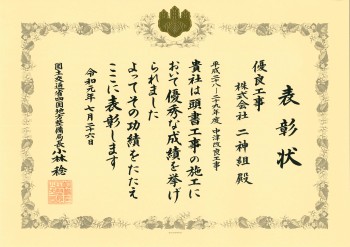 表彰状
優良工事
株式会社 二神組 殿
平成二八-二九年度 中津改良工事
貴社は頭書工事の施工に
おいて優秀な成績を挙げ
られました
よってその功績をたたえ
ここに表彰します
令和元年七月二六日
国土交通省四国地方整備局長 小林 稔